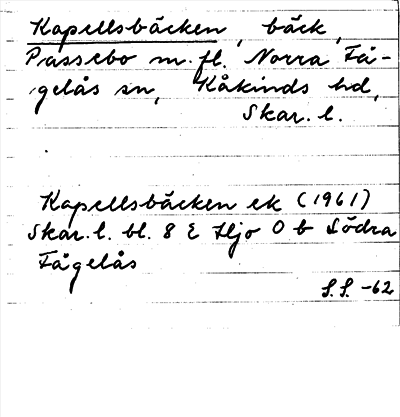 Kapellsbäcken, bäck,
Passebo m. fl. Norra Få-
gelås sn, Kåkinds hd,
Skar. l.
Kapellsbäcken ek (1961)
Skar. l. bl. 8 E Hjo 0 b Södra
Fågelås
S.S. -62